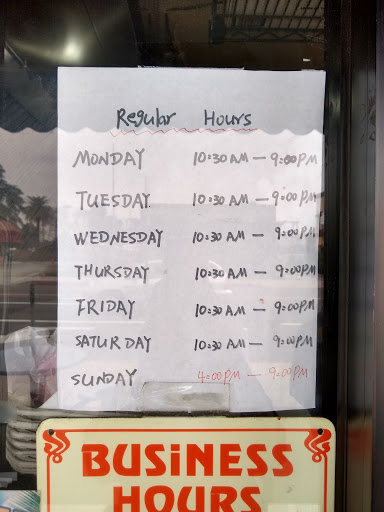 Regular Hours
MONDAY 10:30 AM — 9:00 PM
TUESDAY 10:30 AM — 9:00 PM
WEDNESDAY 10:30 AM — 9:00 PM
THURSDAY 10:30 AM — 9:00 PM
FRIDAY 10:30 AM — 9:00 PM
SATURDAY 10:30 AM — 9:00 PM
SUNDAY 4:00 PM — 9:00 PM
BUSiNESS
HOURS